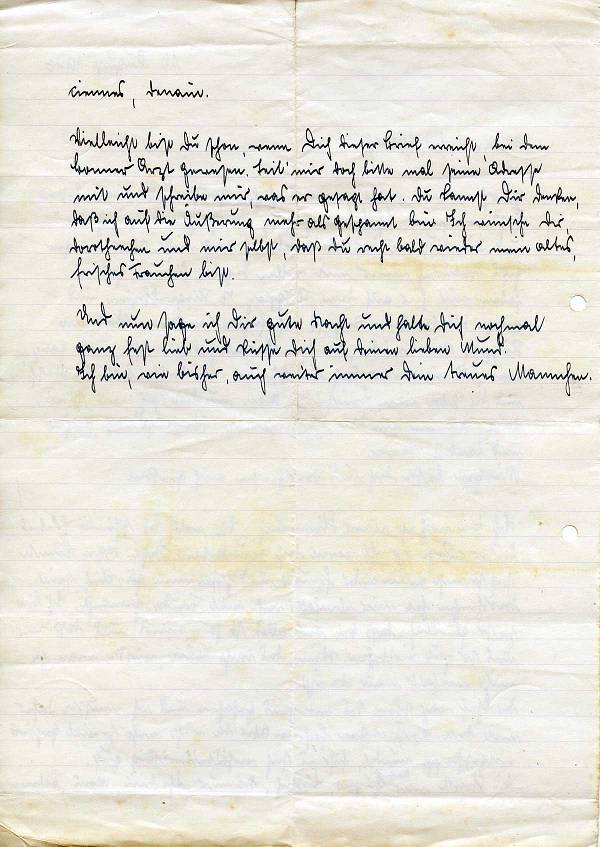 ciennes, Denain.
Vielleicht bist Du schon, wenn Dich dieser Brief erreicht, bei dem
Bonner Arzt gewesen. Teil' mir doch bitte mal seine Adresse
mit und schreibe mir, was er gesagt hat. Du kannst Dir denken,
daß ich auf die Äußerung mehr als gespannt bin. Ich wünsche Dir,
Dorothechen und mir selbst, daß Du recht bald wieder mein altes,
frisches Frauchen bist.
Und nun sage ich Dir gute Nacht und halte Dich nochmal
ganz fest lieb und küsse Dich auf Deinen lieben Mund.
Ich bin, wie bisher, auch weiter immer Dein treues Mannchen.